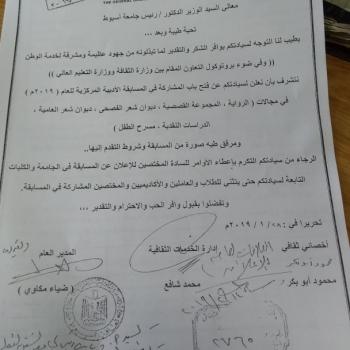 معالي السيد الوزير الدكتور / رئيس جامعة أسيوط
تحية طيبة وبعد ...
يطيب لنا التوجه لسيادتكم بوافر الشكر والتقدير لما تبذلونه من جهود عظيمة ومشرفة لخدمة الوطن
(( وفي ضوء بروتوكول التعاون المقام بين وزارة الثقافة ووزارة التعليم العالي ))
نتشرف بأن نعلن لسيادتكم عن فتح باب المشاركة في المسابقة الأدبية المركزية للعام ( ٢٠١٩م )
في مجالات ( الرواية ، المجموعة القصصية ، ديوان شعر الفصحى ، ديوان شعر العامية ،
الدراسات النقدية ، مسرح الطفل )
ومرفق طيه صورة من المسابقة وشروط التقدم إليها..
الرجاء من سيادتكم التكرم بإعطاء الأوامر للسادة المختصين للإعلان عن المسابقة في الجامعة والكليات
التابعة لسيادتكم حتى يتثنى للطلاب والعاملين والأكاديميين والمختصين المشاركة في المسابقة.
وتفضلوا بقبول وافر الحب والاحترام والتقدير ...
تحريرا في : ٠٨ / ١ / ٢٠١٩م
أخصائي ثقافي إدارة الخدمات الثقافية المدير العام
محمود أبو بكر محمد شافع ( ضياء مكاوي )
٢٧٦٥